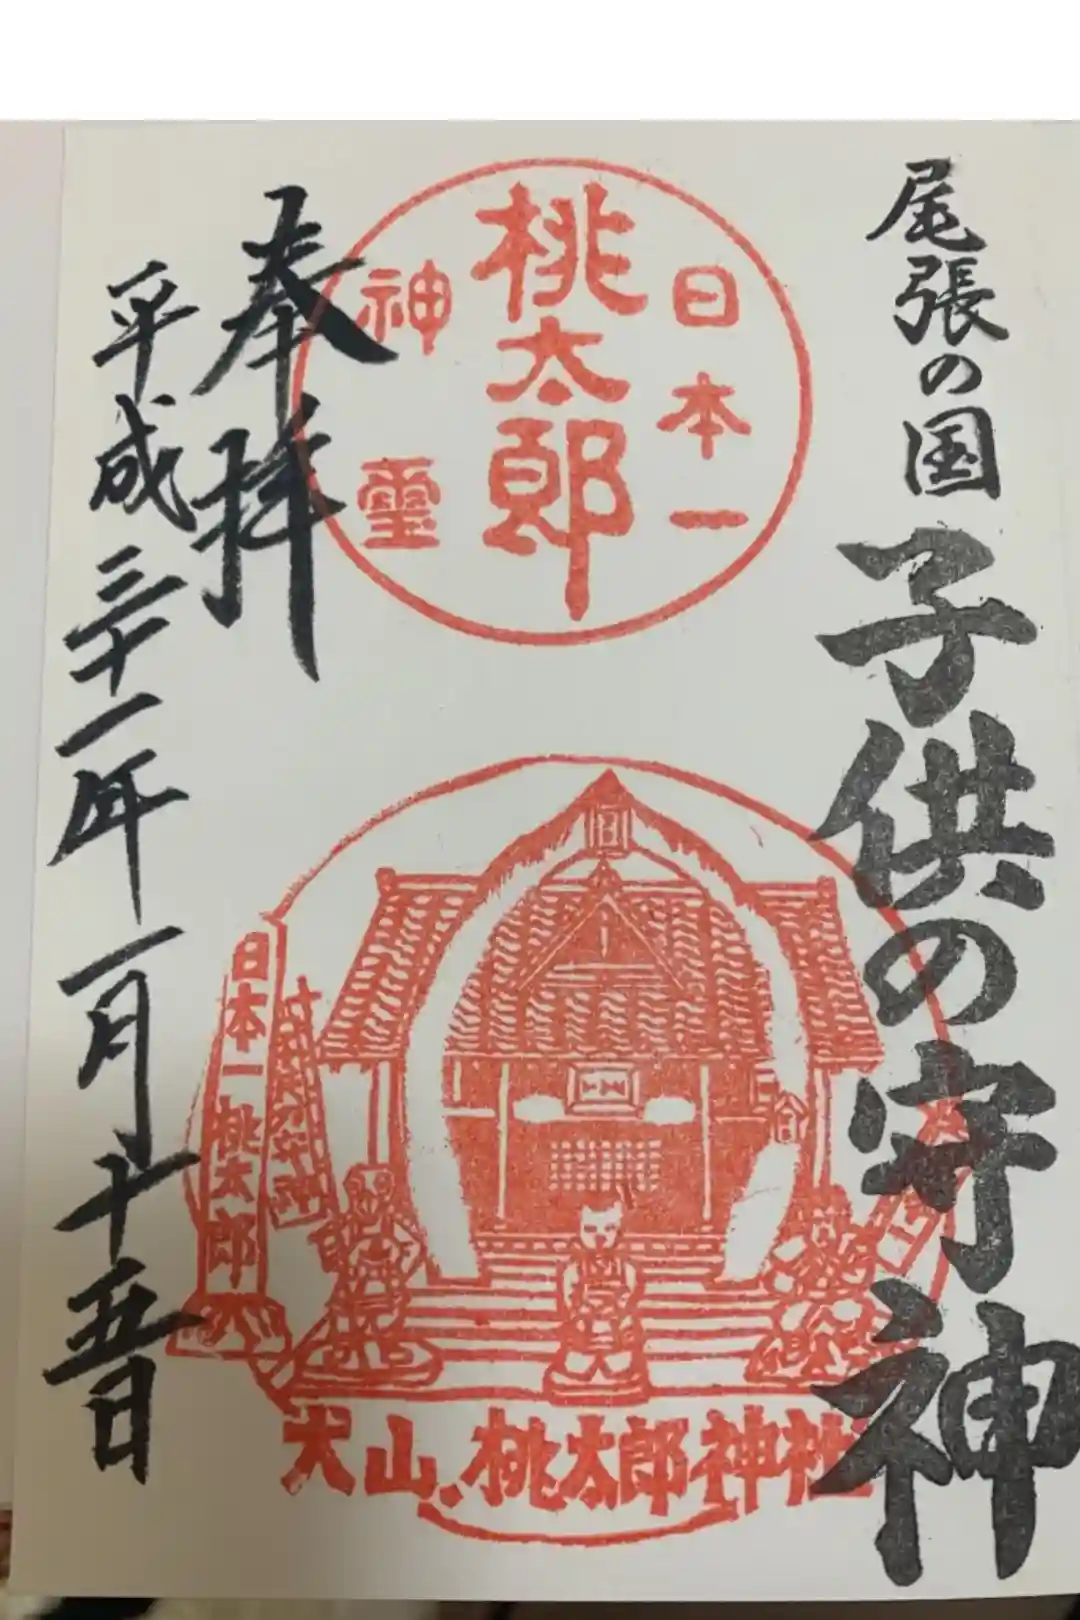 尾張の国
子供の守神
日本一
桃太郎
神霊
奉拝
平成三十一年一月十五日
日本一桃太郎
犬山、桃太郎神社